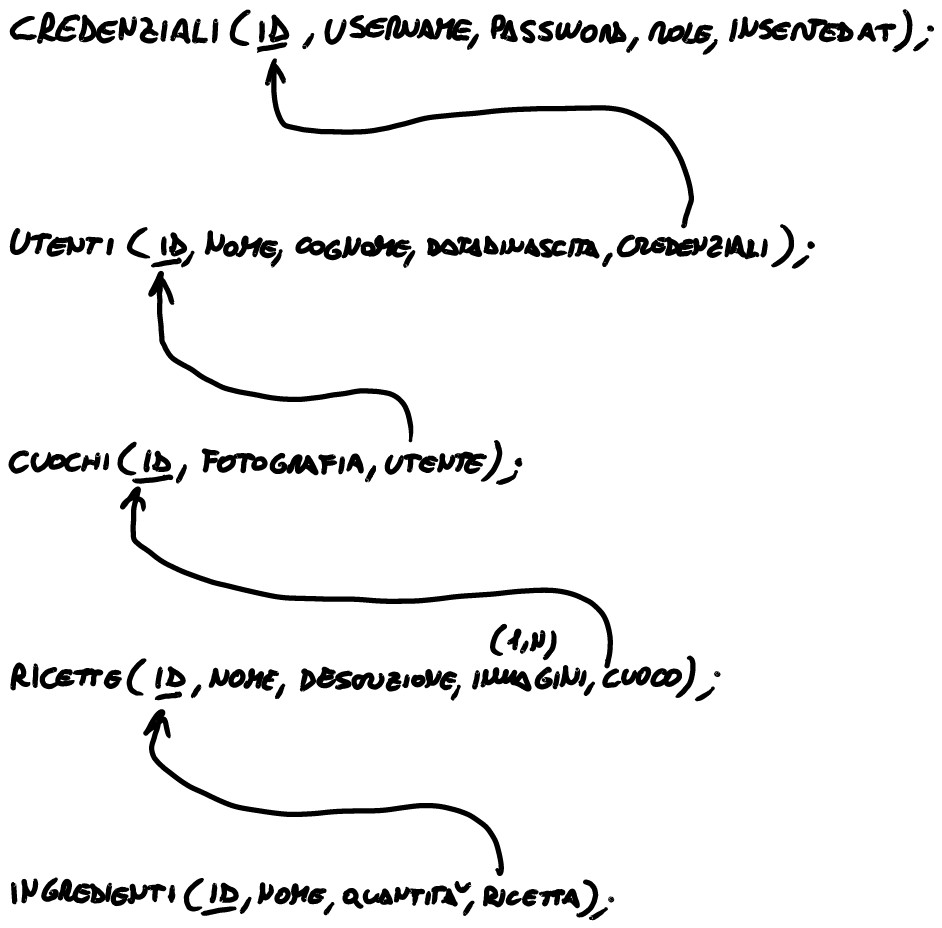 CREDENZIALI (ID, USERNAME, PASSWORD, ROLE, INSERTEDAT);
UTENTI (ID, NOME, COGNOME, DATADINASCITA, CREDENZIALI);
CUOCHI (ID, FOTOGRAFIA, UTENTE);
(1,N)
RICETTE (ID, NOME, DESCRIZIONE, IMMAGINI, CUOCO);
INGREDIENTI (ID, NOME, QUANTITÀ, RICETTA);